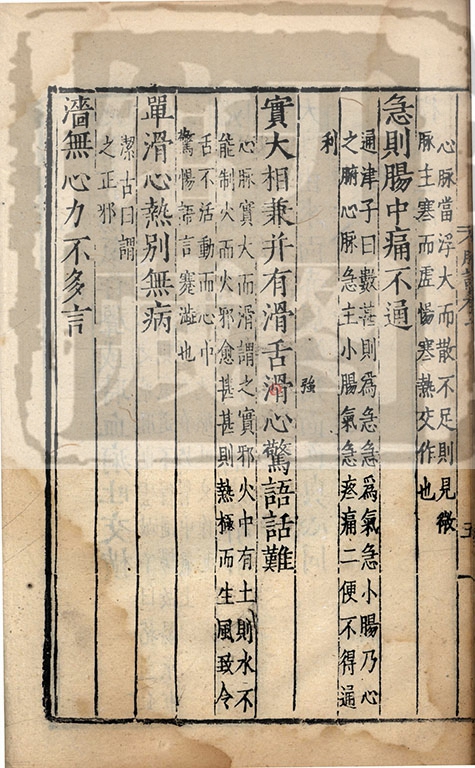 心脉當浮大而散不足則見微
脉主寒而虚惕寒熱交作也
急則腸中痛不通
通津子曰數甚則爲急急爲氣急小腸乃心
之腑心脉急主小腸氣急疼痛二便不得通
利
實大相兼并有滑舌滑心驚語話難
強
心脉實大而滑謂之實邪火中有土則水不
能制火而火邪愈甚甚則熱極而生風致令
舌不活動而心中
驚惕語言蹇澁也
單滑心熱别無病
潔古曰謂
之正邪
濇無心力不多言